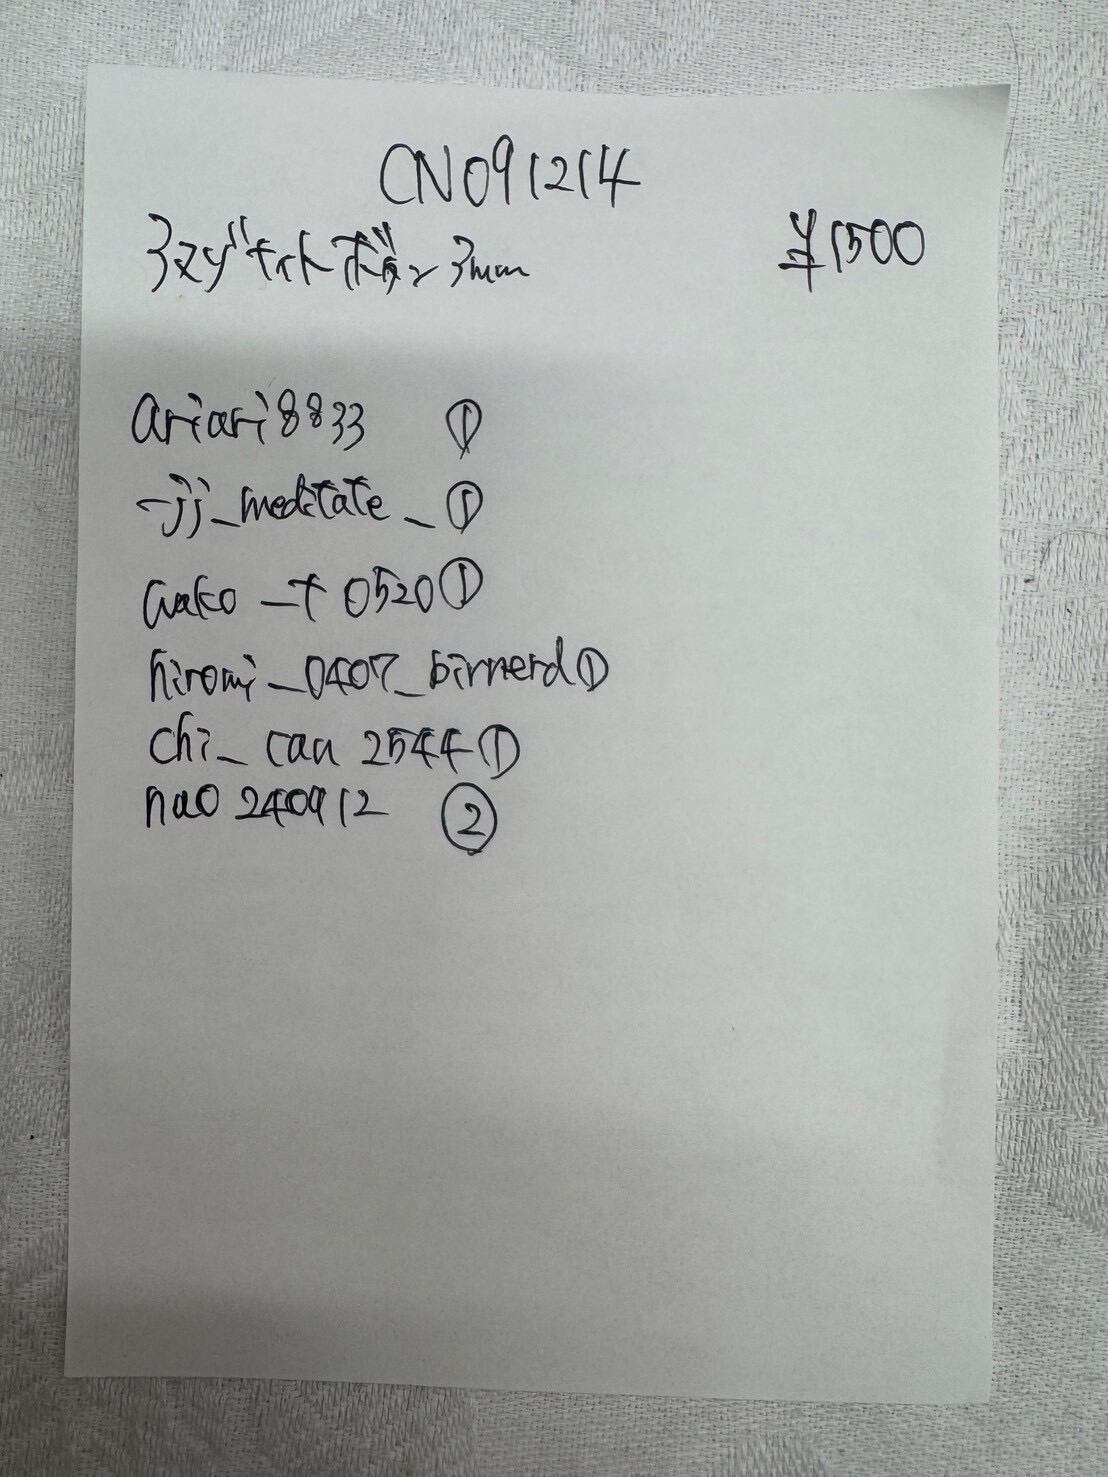 CN091214
アマゾナイトボタン 3mm ¥1500
ariari8833 ①
-jj_meditate_ ①
wako_t0520 ①
hiromi_0407_birnerd ①
chi_caa2544 ①
nao240912 ②